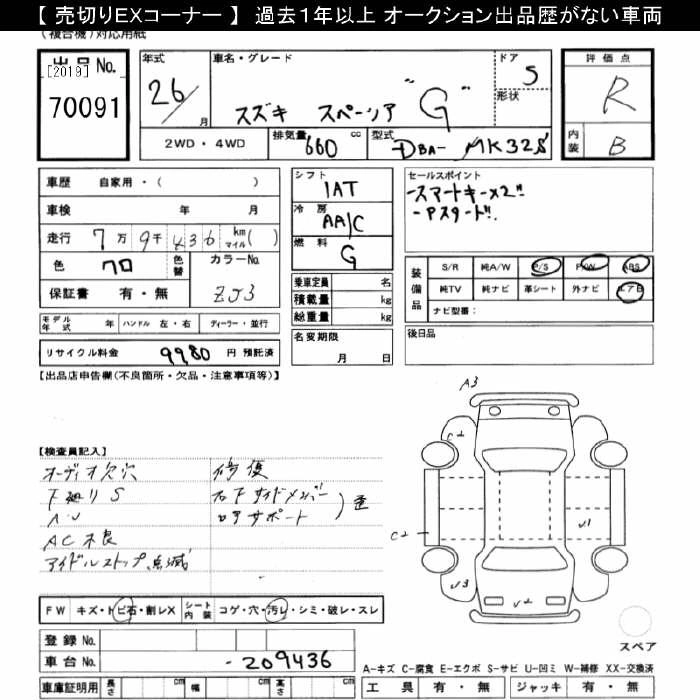 【 売切りEXコーナー 】 過去１年以上 オークション出品歴がない車両
(複合機)対応用紙
出品No.
[2019]
70091
年式
26/
月
車名・グレード
スズキ スペーシア "G"
ドア
5
形状
評価点
R
内装
B
2WD・4WD
排気量
660
cc
型式
DBA- MK32S
車歴 自家用・( )
車検 年 月
走行 7万9千436 km マイル( )
色 クロ 色替
カラーNo.
ZJ3
保証書 有・無
シフト
IAT
冷房
AA/C
燃料
G
乗車定員 名
積載量 kg
総重量 kg
セールスポイント
-スマートキー×2"
-Pスタート".
装備品
S/R 純A/W P/S P/W ABS
純TV 純ナビ 革シート 外ナビ エアB
ナビ型番：
モデル年式 年 ハンドル 左・右 ディーラー・並行
名変期限
月 日
後日品
リサイクル料金 9980 円 預託済
【出品店申告欄(不良箇所・欠品・注意事項等)】
A3
C2
【検査員記入】
オーディオ欠穴
下廻りS
AC不良
アイドルストップ点滅
修復
右下サイドメンバー
コアサポート
歪
C2
U1
U3
U2
FW キズ・トビ石・削レX
シート内装 コゲ・穴・汚レ・シミ・破レ・スレ
登録No.
車台No. -209436
スペア
車庫証明用 長さ cm 幅 cm 高さ cm
A-キズ C-腐食 E-エクボ S-サビ U-凹ミ W-補修 XX-交換済
工具 有・無 ジャッキ 有・無